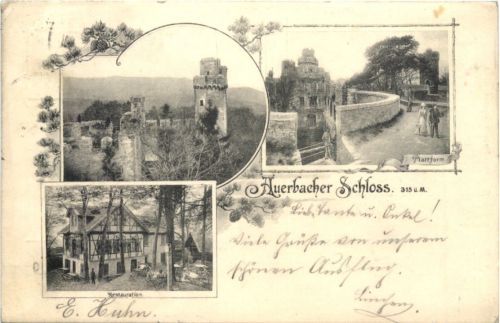 Plattform
Auerbacher Schloss. 315 ü. M.
Lieb. Tante u. Onkel!
Viele Grüße von unserem
schönen Ausflug.
Restauration
E. Huhn.